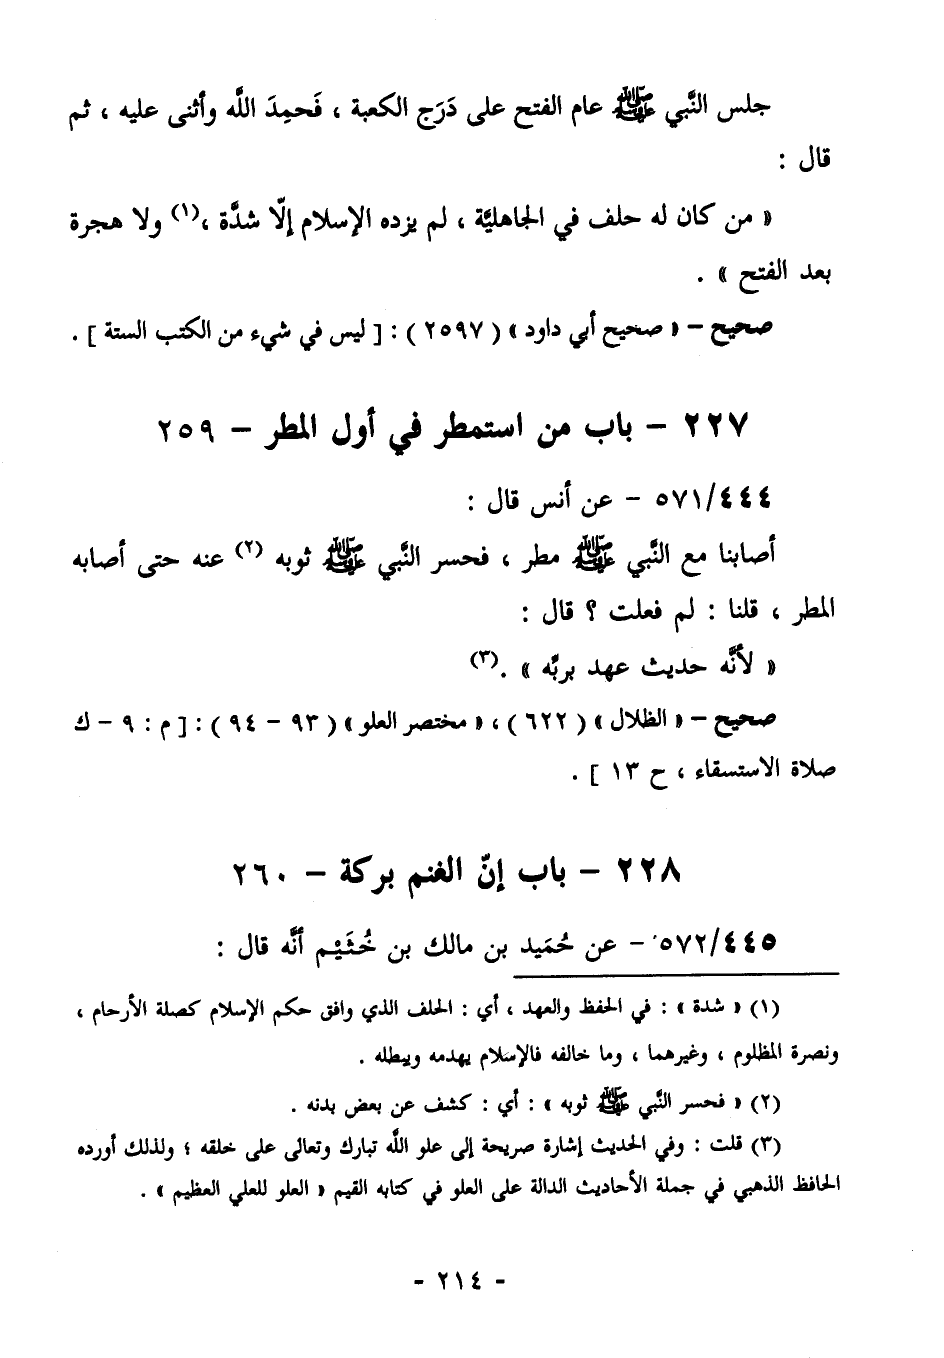 جلس النَّبي ﷺ عام الفتح على دَرَج الكعبة ، فَحمِدَ اللَّه وأثنى عليه ، ثم
قال :
« من كان له حلف في الجاهليَّة ، لم يزده الإسلام إلّا شدَّة ،(١) ولا هجرة
بعد الفتح » .
صحيح – « صحيح أبي داود » ( ٢٥٩٧ ) : [ ليس في شيء من الكتب الستة ] .
٢٢٧ – باب من استمطر في أول المطر – ٢٥٩
٥٧١/٤٤٤ – عن أنس قال :
أصابنا مع النَّبي ﷺ مطر ، فحسر النَّبي ﷺ ثوبه (٢) عنه حتى أصابه
المطر ، قلنا : لم فعلت ؟ قال :
« لأنَّه حديث عهد بربِّه » .(٣)
صحيح – « الظلال » ( ٦٢٢ ) ، « مختصر العلو » ( ٩٣ – ٩٤ ) : [ م : ٩ – ك
صلاة الاستسقاء ، ح ١٣ ] .
٢٢٨ – باب إنّ الغنم بركة – ٢٦٠
٥٧٢/٤٤٥ – عن حُمَيد بن مالك بن خُثَيْم أنَّه قال :
(١) « شدة » : في الحفظ والعهد ، أي : الحلف الذي وافق حكم الإسلام كصلة الأرحام ،
ونصرة المظلوم ، وغيرهما ، وما خالفه فالإسلام يهدمه ويبطله .
(٢) « فحسر النَّبي ﷺ ثوبه » : أي : كشف عن بعض بدنه .
(٣) قلت : وفي الحديث إشارة صريحة إلى علو اللَّه تبارك وتعالى على خلقه ؛ ولذلك أورده
الحافظ الذهبي في جملة الأحاديث الدالة على العلو في كتابه القيم « العلو للعلي العظيم » .
- ٢١٤ -